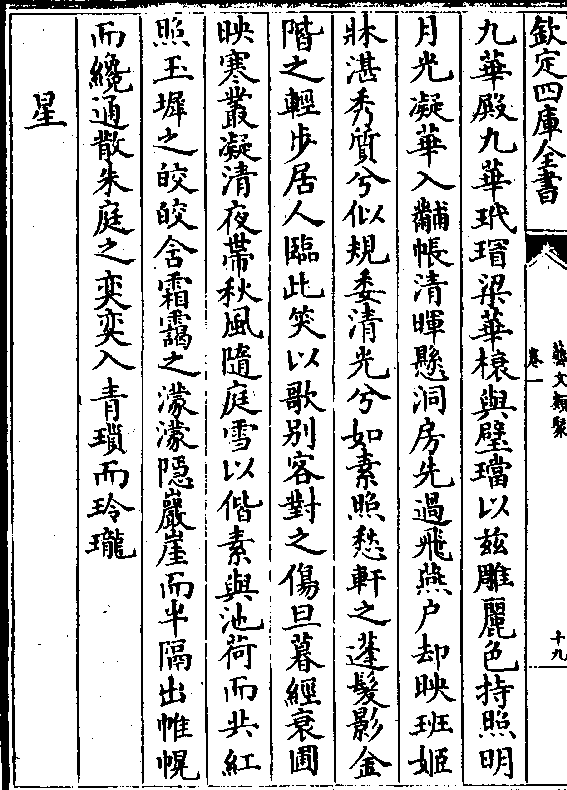 欽定四庫全書
藝文類聚
卷一
十九
九華殿九華玳瑁梁華榱與璧璫以兹雕麗色持照明
月光凝華入黼帳清暉懸洞房先過飛燕户却映班姬
牀湛秀質兮似規委清光兮如素照愁軒之蓬髮影金
階之輕步居人臨此笑以歌别客對之傷旦暮經衰圃
映寒叢凝清夜帶秋風隨庭雪以偕素與池荷而共紅
照玉墀之皎皎含霜靄之濛濛隱巖崖而半隔出帷幌
而纔通散朱庭之奕奕入青瑣而玲瓏
星